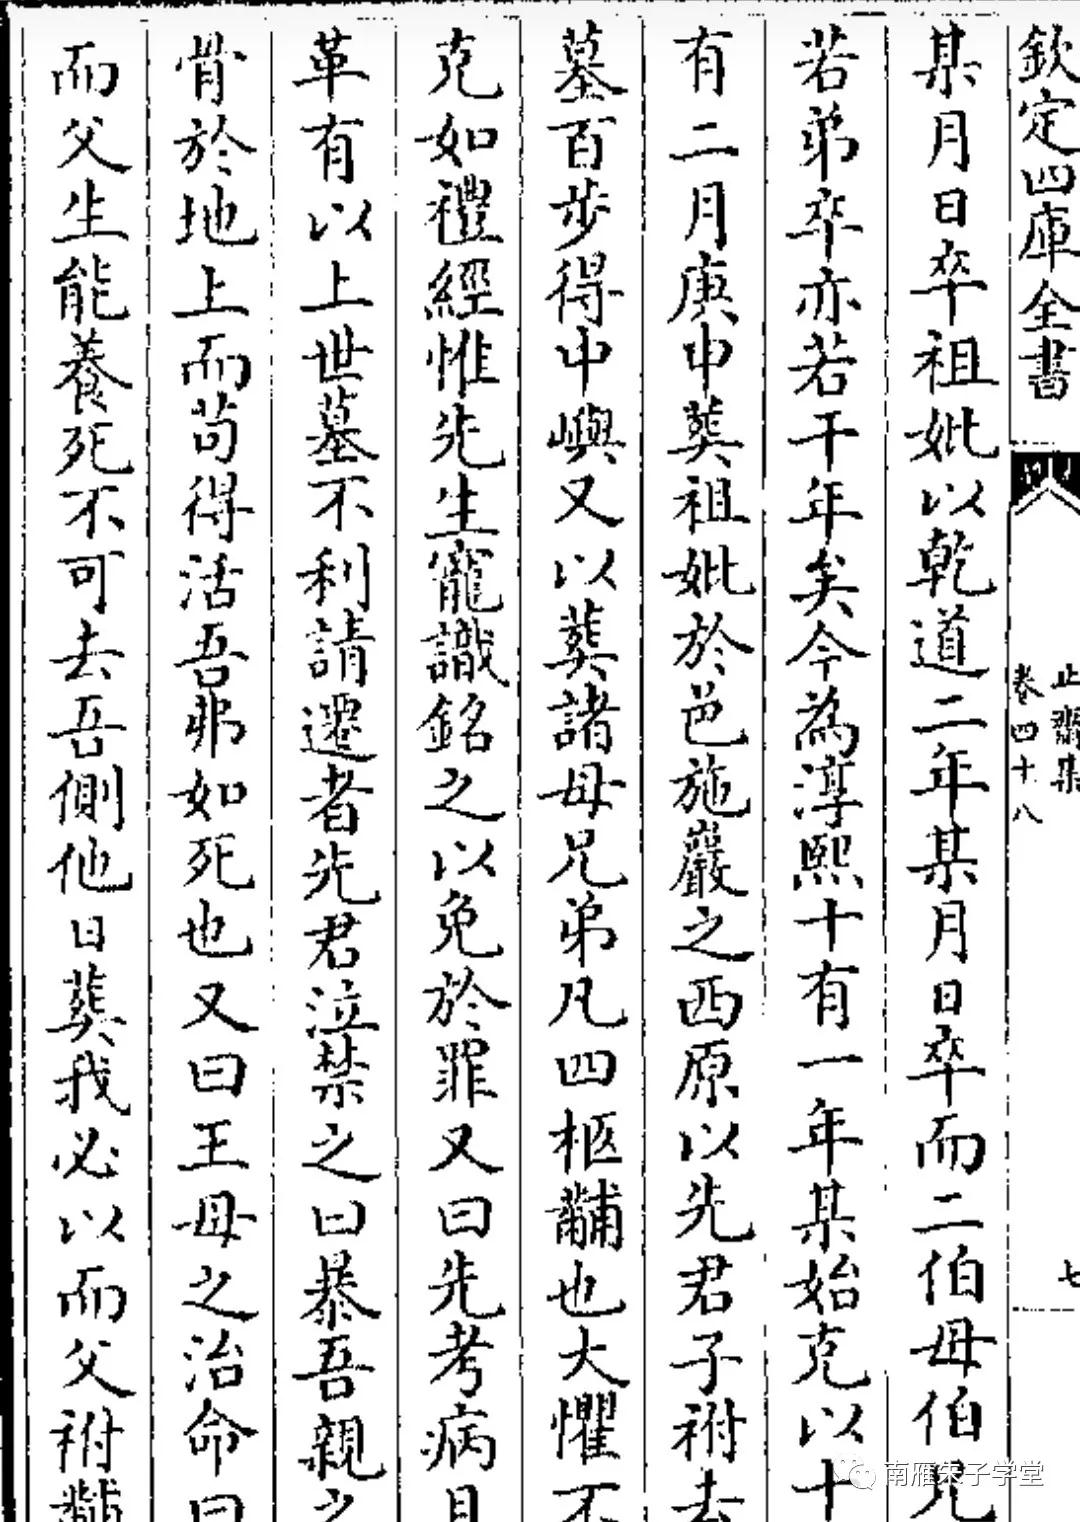 欽定四庫全書
止齋集
卷四十八
七
某月日卒祖妣以乾道二年某月日卒而二伯母伯兄
若弟卒亦若干年矣今為淳熙十有一年某始克以十
有二月庚申葬祖妣於邑施巖之西原以先君子祔去
墓百步得中嶼又以葬諸母兄弟凡四柩黼也大懼不
克如禮經惟先生寵識銘之以免於罪又曰先考病且
革有以上世墓不利請遷者先君泣禁之曰暴吾親之
骨於地上而苟得活吾弗如死也又曰王母之治命曰
而父生能養死不可去吾側他日葬我必以而父祔黼
南雁朱子学堂